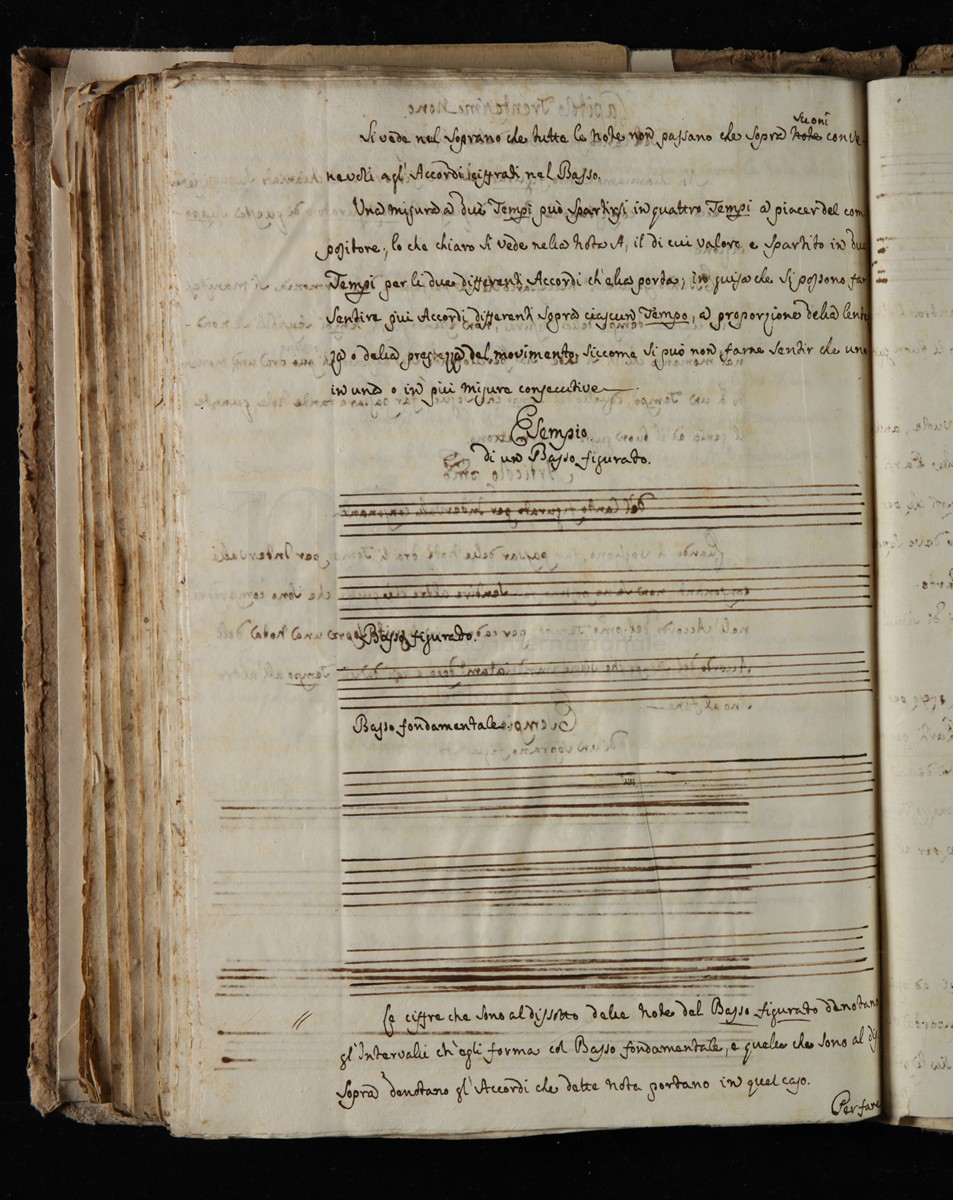 suoni
Si vede nel Soprano che tutte le note non passano che sopra note conve-
nevoli agl'Accordi ciffrati nel Basso.
Una misura a due Tempi può spartirsi in quattro Tempi a piacer del com
positore, lo che chiaro si vede nella nota A, il di cui valore e spartito in due
Tempi per li due differenti Accordi ch'ella porta; in guisa che si possono far
sentire qui Accordi differenti sopra ciascun Tempo, a proporzione della lent
za o della prestezza del movimento, siccome si può non farne sentir che uno
in una o in più misure consecutive.
Esempio
di un Basso figurato.
Basso figurato.
Basso fondamentale
Le ciffre che sono al dissotto delle note del Basso figurato denotano
gl'Intervalli ch'egli forma col Basso fondamentale, e quelle che sono al dis
sopra denotano gl'Accordi che dette nota portano in quel caso.
Per fare